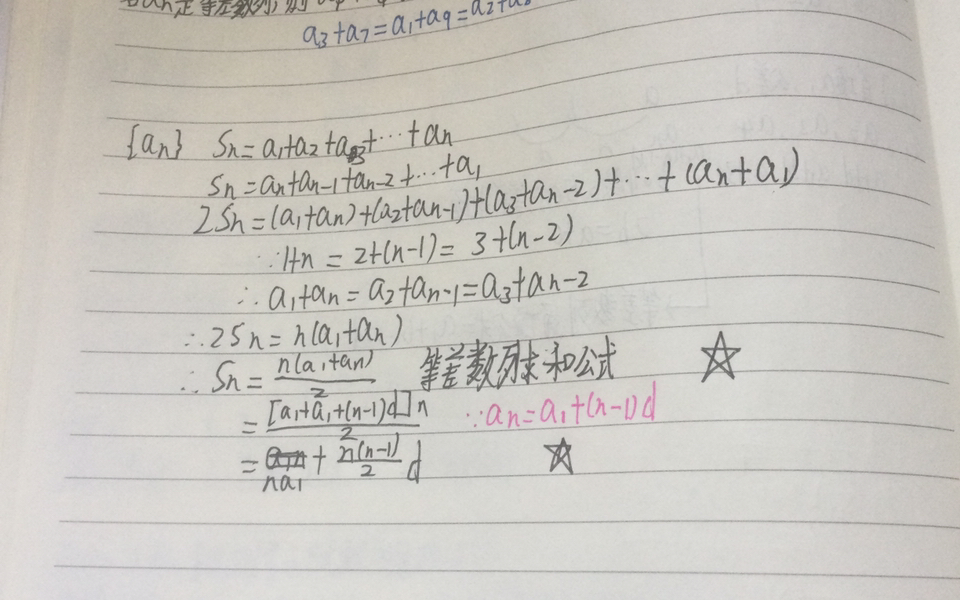 是等差数列,则
a₃+a₇=a₁+a₉=a₂+a₈
{aₙ} Sₙ=a₁+a₂+a₃+…+aₙ
Sₙ=aₙ+aₙ₋₁+aₙ₋₂+…+a₁
2Sₙ=(a₁+aₙ)+(a₂+aₙ₋₁)+(a₃+aₙ₋₂)+…+(aₙ+a₁)
∵1+n=2+(n-1)=3+(n-2)
∴a₁+aₙ=a₂+aₙ₋₁=a₃+aₙ₋₂
∴2Sₙ=n(a₁+aₙ)
∴Sₙ=n(a₁+aₙ)/2 等差数列求和公式 ☆
=[a₁+a₁+(n-1)d]n/2 ∵aₙ=a₁+(n-1)d
=na₁+n(n-1)/2 d ☆